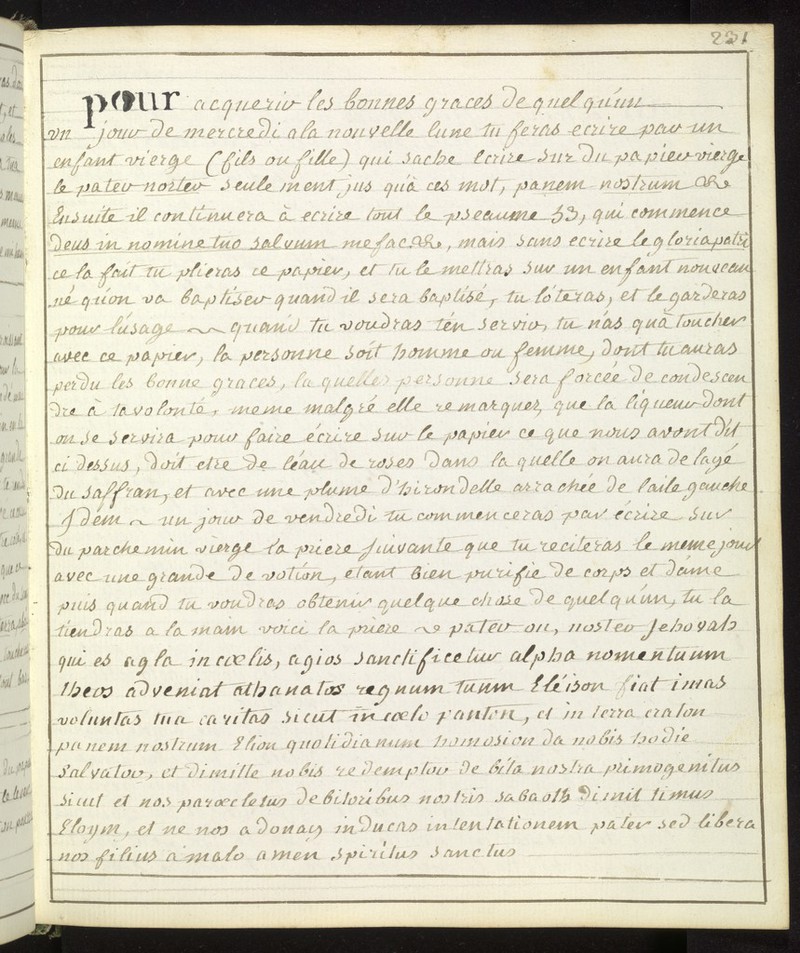 231
pour acquerir les bonnes graces de quelqu'un
un jour de mercredi a la nouvelle lune tu feras ecrire par un
enfant vierge (fils ou fille) qui sache ecrire sur du papier vierge
le pater noster seulement jus qu'à ces mot, panem nostrum &c
Ensuite il continuera à ecrire tout le pseaume 53, qui commence
deus in nomine tuo salvum me fac &c, mais sans ecrire le gloria patri
ce la fait tu plieras ce papier, et tu le mettras sur un enfant nouveau
né qu'on va baptiser quand il sera baptisé, tu lóteras, et le garderas
pour lúsage ~ quand tu voudras tén servir, tu nás quà toucher
avec ce papier, la personne soit homme ou femme, dont tu auras
perdu les bonne graces, la quelle personne sera forcée de condescen
dre à ta volonté, meme malgré élle remarquez, que la liqueur dont
on se servira pour faire écrire sur le papier ce que nous avont dit
ci dessus, doit etre de léau de roses dans la quelle on aura delayé
du saffran, et avec une plume d'hirondelle arrachée de laile gauche
Idem ~ un jour de vendredi tu commenceras par écrire sur
du parchemin vierge la priere suivante que tu reciteras le meme jour
avec une grande devotion, etant bien purifie de corps et dáme
puis quand tu voudras obtenir quelque chose de quelqu'un, tu la
tiendras a la main voici la priere ~ pater on, noster Jehovah
qui es agla in cœlis, agios sanctificetur alpha nomen tuum
theos adveniat athanatos regnum tuum Eléison fiat imas
voluntas tua caritas sicut in cœlo panton, et in terra craton
panem nostrum Elion quotidianum homosion da nobis hodie
salvator, et dimitte nobis redemptor debita nostra primogenitus
sicut et nos paracletus debitoribus nostris sabaoth dimittimus
Eloym, et ne nos adonay inducas in tentationem pater sed libera
nos filius a malo amen spiritus sanctus